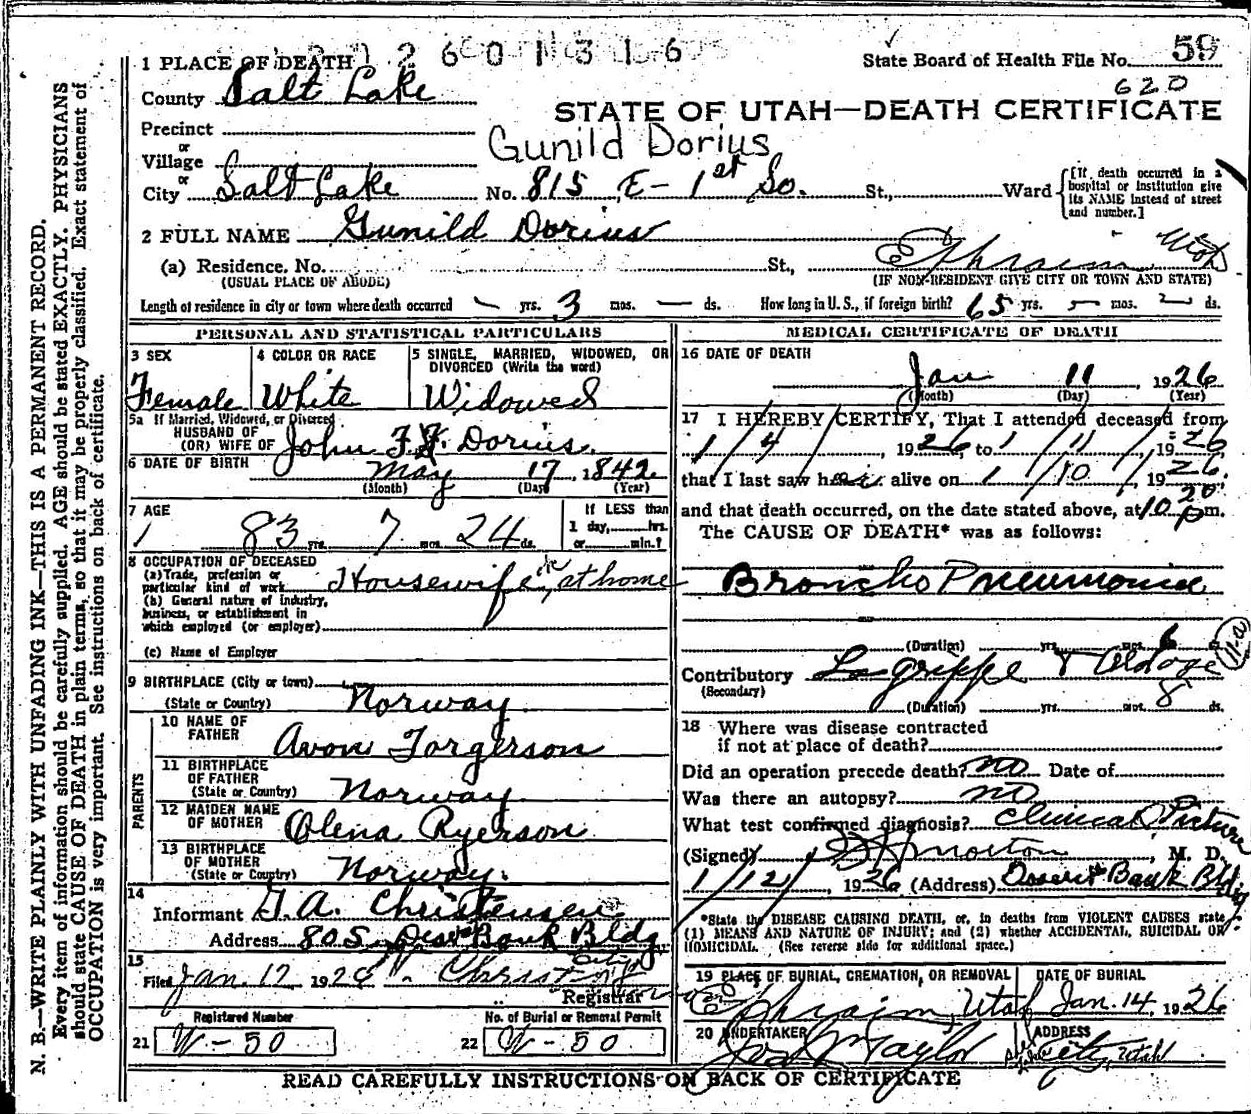 N. B.—WRITE PLAINLY WITH UNFADING INK—THIS IS A PERMANENT RECORD.
Every item of information should be carefully supplied. AGE should be stated EXACTLY. PHYSICIANS
should state CAUSE OF DEATH in plain terms, so that it may be properly classified. Exact statement of
OCCUPATION is very important. See instructions on back of certificate.
2601316
State Board of Health File No. 59
620
1 PLACE OF DEATH
County Salt Lake
STATE OF UTAH—DEATH CERTIFICATE
Precinct
or
Village
Gunild Dorius
or
City Salt Lake No. 815 E- 1st So. St., Ward
[If death occurred in a
hospital or institution give
its NAME instead of street
and number.]
2 FULL NAME Gunild Dorius
(a) Residence. No. St., Ephraim Utah
(USUAL PLACE OF ABODE) (IF NON-RESIDENT GIVE CITY OR TOWN AND STATE)
Length of residence in city or town where death occurred - yrs. 3 mos. - ds. How long in U. S., if foreign birth? 65 yrs. - mos. - ds.
PERSONAL AND STATISTICAL PARTICULARS
3 SEX
Female
4 COLOR OR RACE
White
5 SINGLE, MARRIED, WIDOWED, OR
DIVORCED (Write the word)
Widowed
5a If Married, Widowed, or Divorced
HUSBAND OF
(OR) WIFE OF John F. F. Dorius.
6 DATE OF BIRTH May 17, 1842
(Month) (Day) (Year)
7 AGE
83 yrs. 7 mos. 24 ds.
If LESS than
1 day, hrs.
or min.?
8 OCCUPATION OF DECEASED
(a) Trade, profession or
particular kind of work Housewife, at home
(b) General nature of industry,
business, or establishment in
which employed (or employer)
(c) Name of Employer
9 BIRTHPLACE (City or town)
(State or Country) Norway
PARENTS
10 NAME OF
FATHER Avon Torgerson
11 BIRTHPLACE
OF FATHER
(State or Country) Norway.
12 MAIDEN NAME
OF MOTHER Olena Ryerson
13 BIRTHPLACE
OF MOTHER
(State or Country) Norway.
14
Informant G. A. Christensen
Address 805 Des Bank Bldg
City
15
Filed Jan. 12 192
Registrar
Registered Number
21 W-50
No. of Burial or Removal Permit
22 W-50
MEDICAL CERTIFICATE OF DEATH
16 DATE OF DEATH
Jan 11, 1926
(Month) (Day) (Year)
17 I HEREBY CERTIFY, That I attended deceased from
1/4/, 1926, to 1/11/, 1926,
that I last saw her alive on 1/10/, 1926,
and that death occurred, on the date stated above, at 10 20 p m.
The CAUSE OF DEATH* was as follows:
Broncho Pneumonia
(Duration) yrs. mos. 6
11-a
Contributory Lagrippe & Old age
(Secondary)
(Duration) yrs. mos. 8 ds.
18 Where was disease contracted
if not at place of death?
Did an operation precede death? no Date of
Was there an autopsy? no
What test confirmed diagnosis? Clinical Picture
(Signed) Morton, M. D.
1/12/, 1926 (Address) Deseret Bank Bldg.
*State the DISEASE CAUSING DEATH, or, in deaths from VIOLENT CAUSES state
(1) MEANS AND NATURE OF INJURY; and (2) whether ACCIDENTAL, SUICIDAL OR
HOMICIDAL. (See reverse side for additional space.)
19 PLACE OF BURIAL, CREMATION, OR REMOVAL
Ephraim, Utah
DATE OF BURIAL
Jan. 14, 1926
20 UNDERTAKER
Jos. Taylor
ADDRESS
Salt Lake City, Utah
READ CAREFULLY INSTRUCTIONS ON BACK OF CERTIFICATE